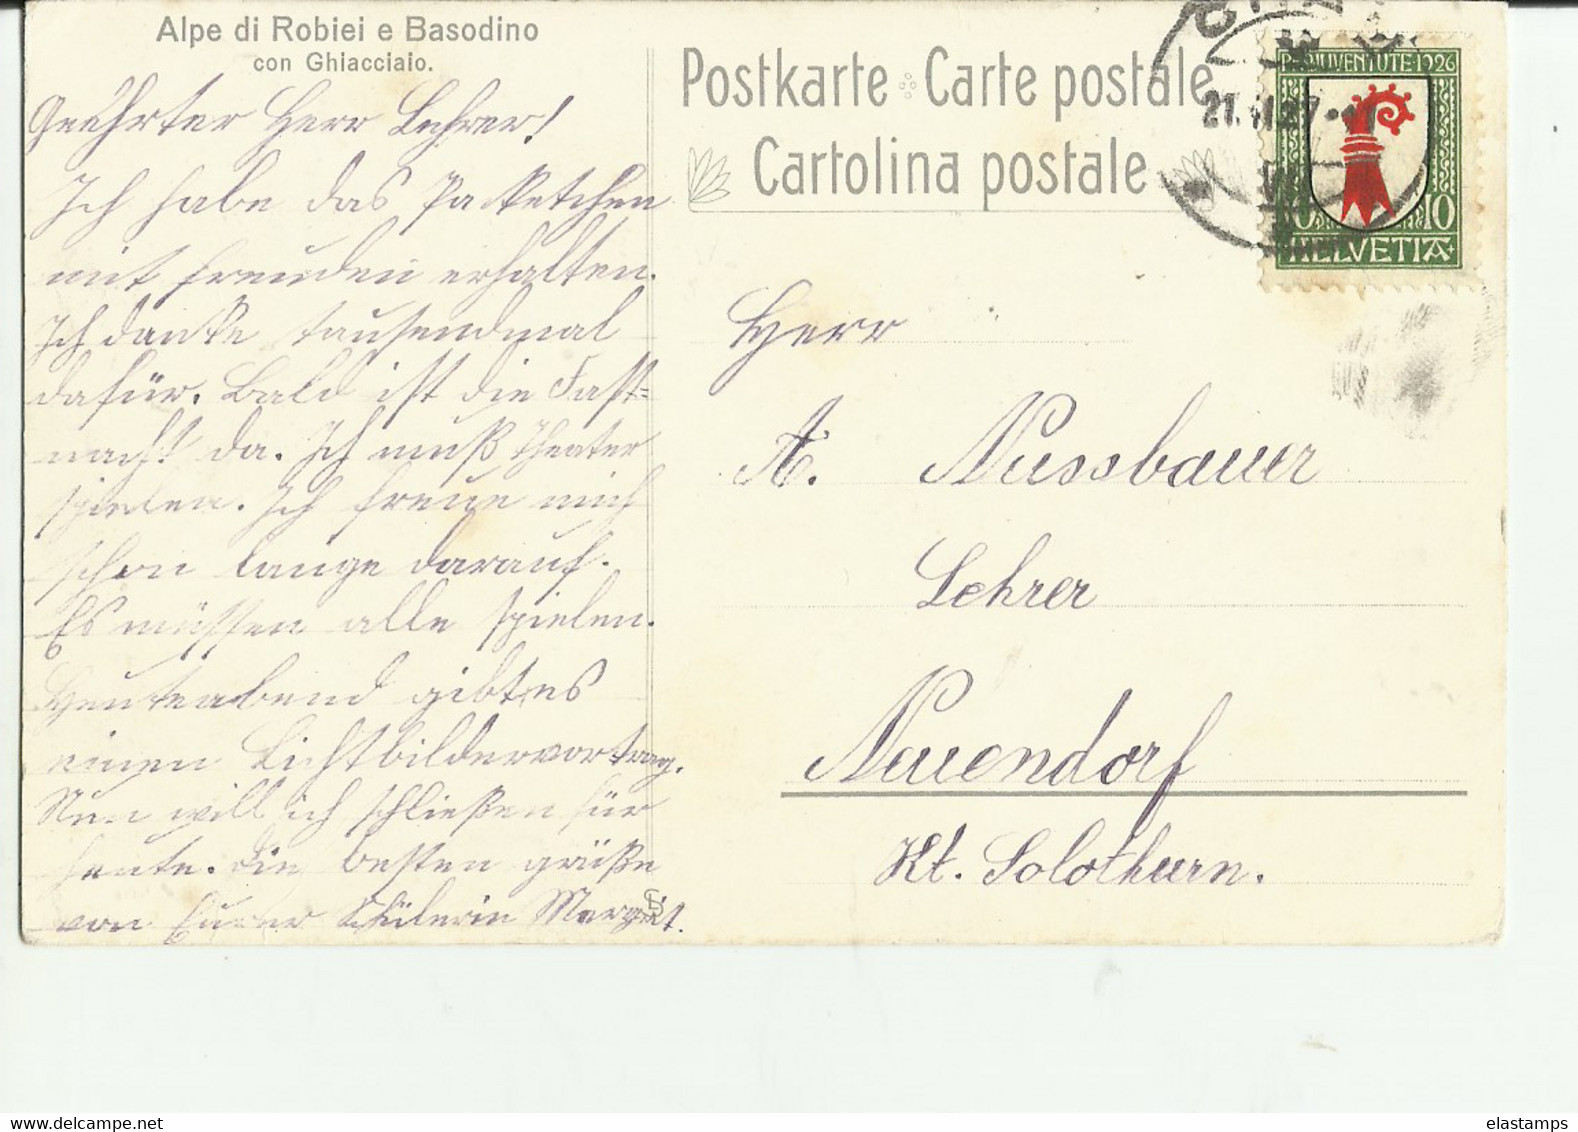 Alpe di Robiei e Basodino
con Ghiacciaio.
Geehrter Herr Lehrer!
Ich habe das Packetchen
mit freuden erhalten.
Ich danke tausendmal
dafür. Bald ist die Fast=
nacht da. Ich muß Theater
spielen. Ich freue mich
schon lange darauf.
Es müssen alle spielen.
Heuteabend gibt es
einen Lichtbildervortrag.
Nun will ich schließen für
heute. Die besten grüße
von Eurer Schülerin Margrit.
Postkarte Carte postale
Cartolina postale
21. 27
PRO JUVENTUTE 1926
10 10
HELVETIA
Herr
A. Nussbauer
Lehrer
Neuendorf
Kt. Solothurn.
elastamps